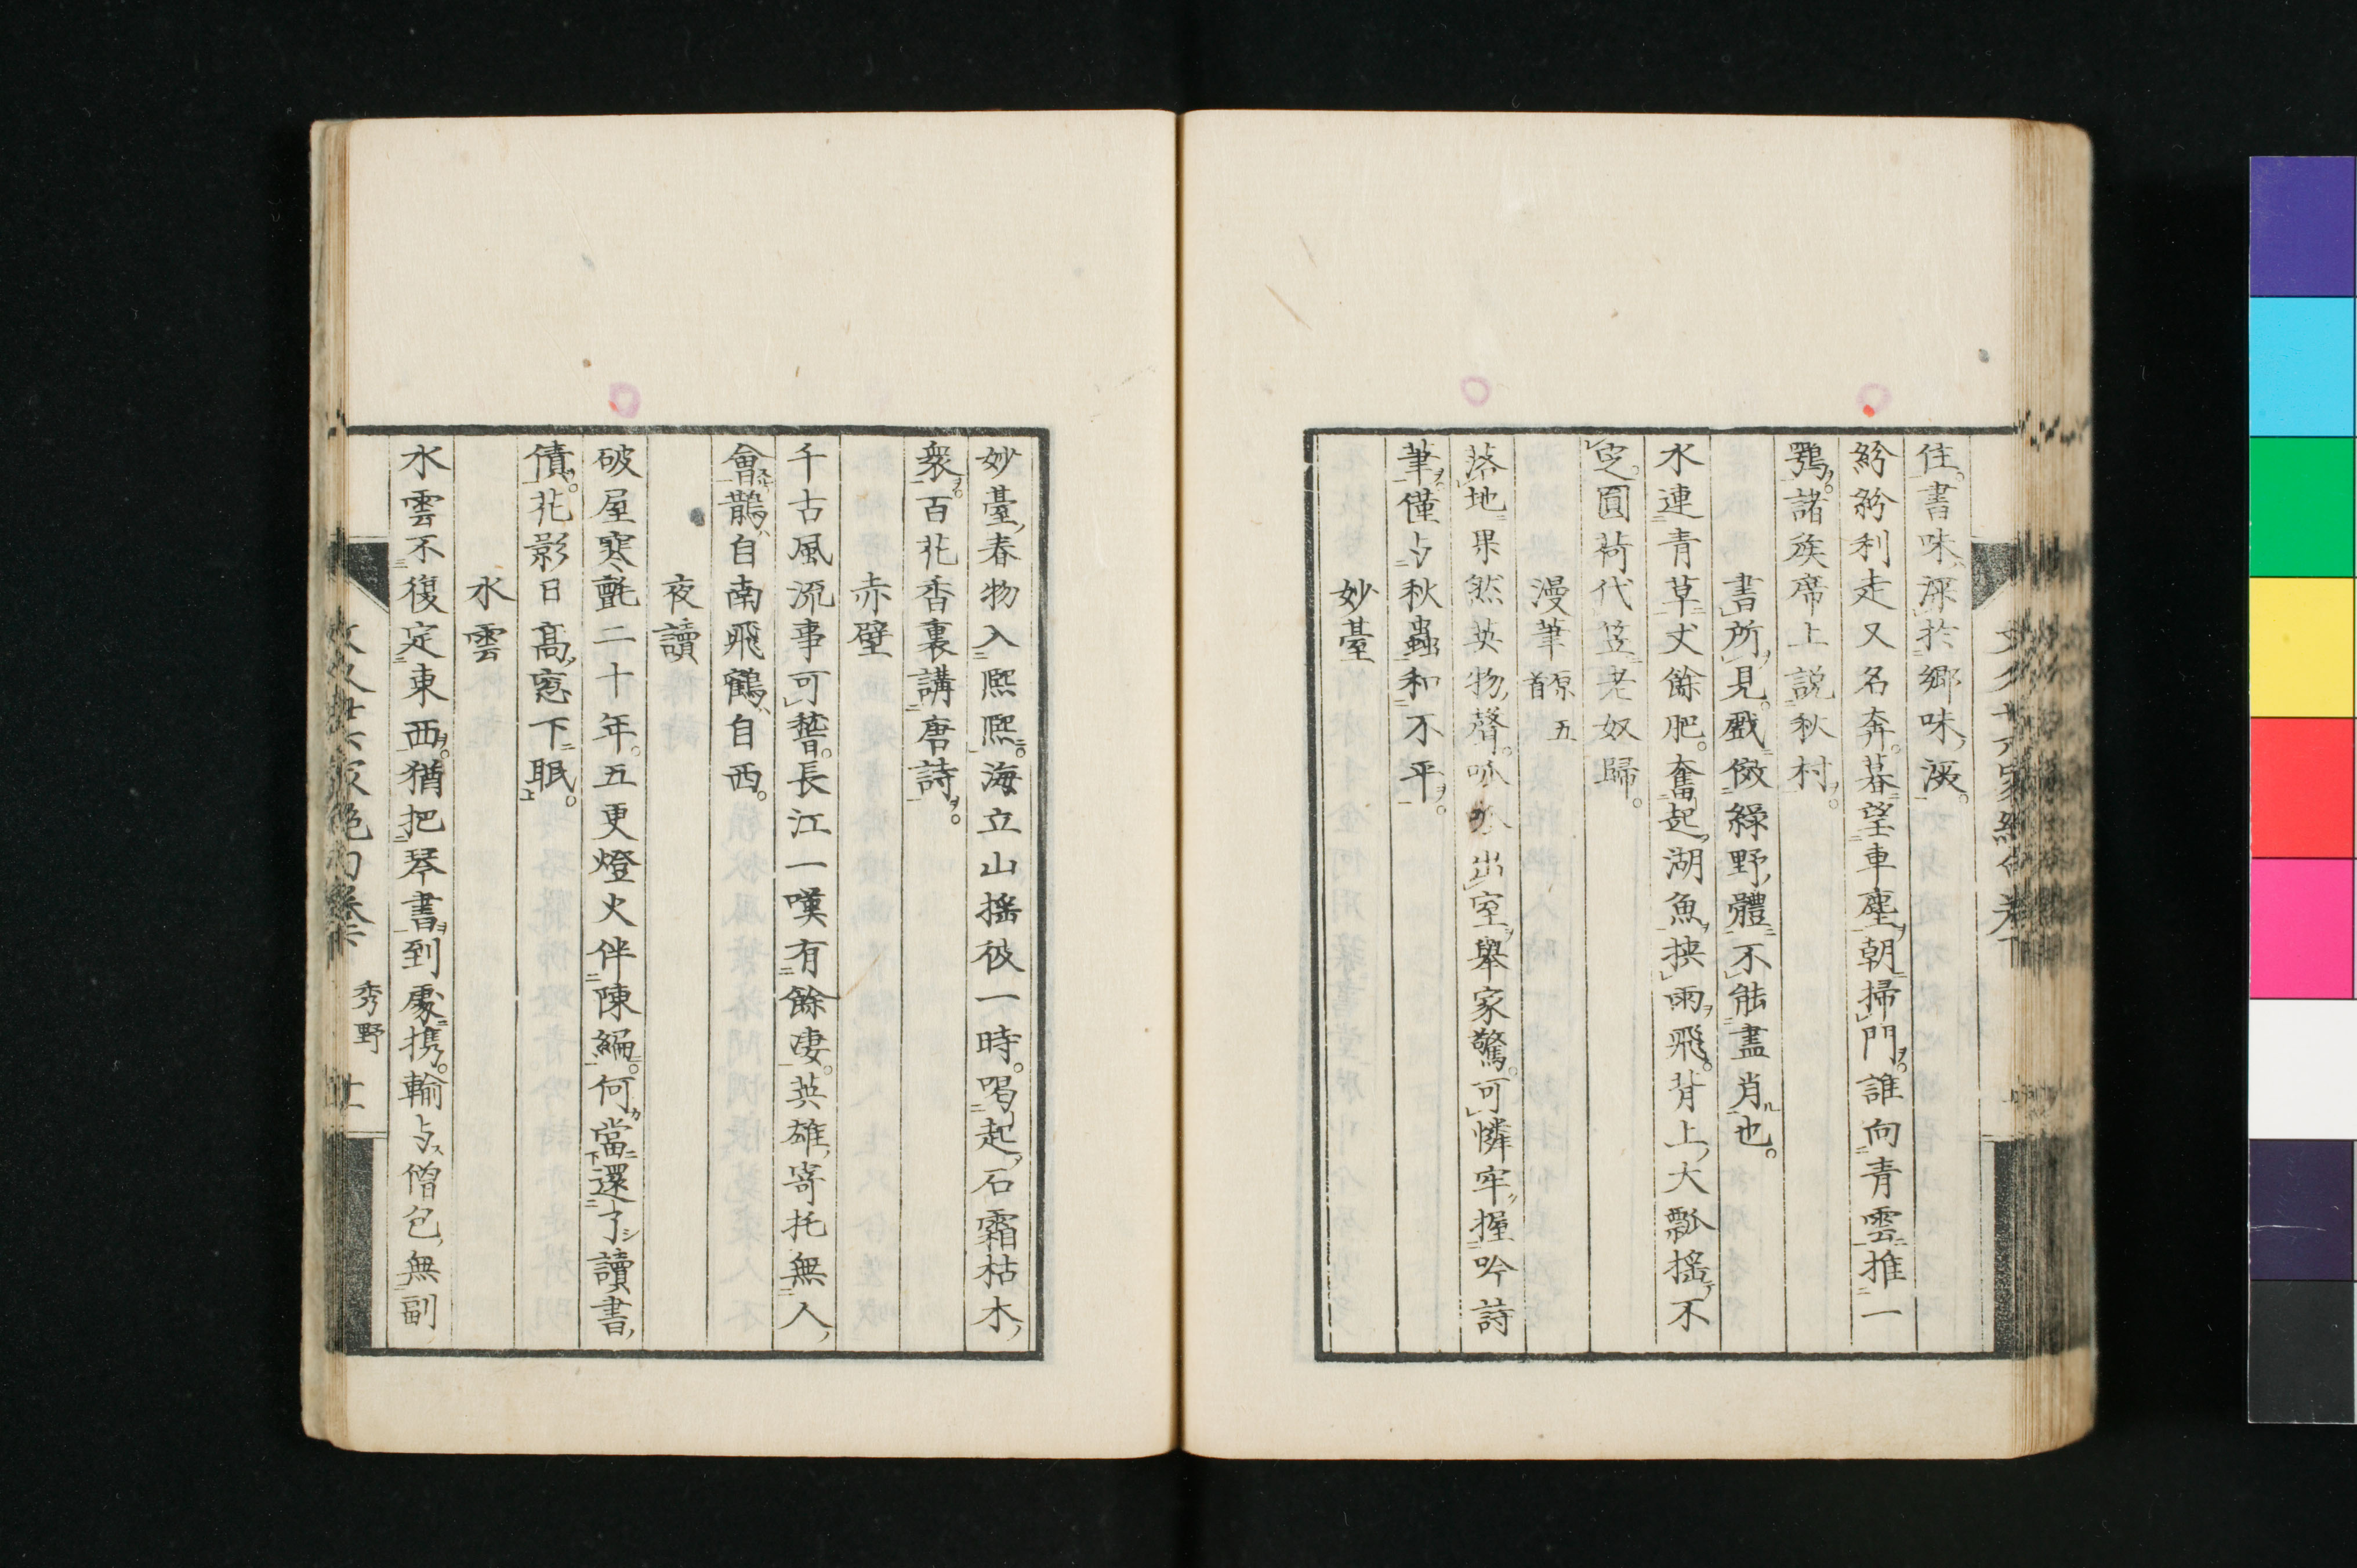 住。書味深於郷味淡。
紛紛利走又名奔。暮望車塵朝掃門。誰向青雲推一
鶚。諸矦席上説秋村。
書所見。戲傚繰野體不能盡肖也。
水連青草丈餘肥。奮起湖魚挟雨飛。背上大瓢搖不
定。圓荷代笠老奴歸。
漫筆 原五首
落地果然英物聲。呱呱出室舉家驚。可憐牢握吟詩
筆。僅与秋蟲和不平。
妙臺
妙臺春物入熈熈。海立山搖彼一時。喝起石霜枯木
衆。百花香裏講唐詩。
赤壁
千古風流事可驚。長江一嘆有餘凄。英雄寄托無人
會。鵲自南飛鶴自西。
夜讀
破屋寒氈二十年。五更燈火伴陳編。何當還了讀書
債。花影日高窓下眠。
水雲
水雲不復定東西。猶把琴書到處携。輸与僧包無副
秀野